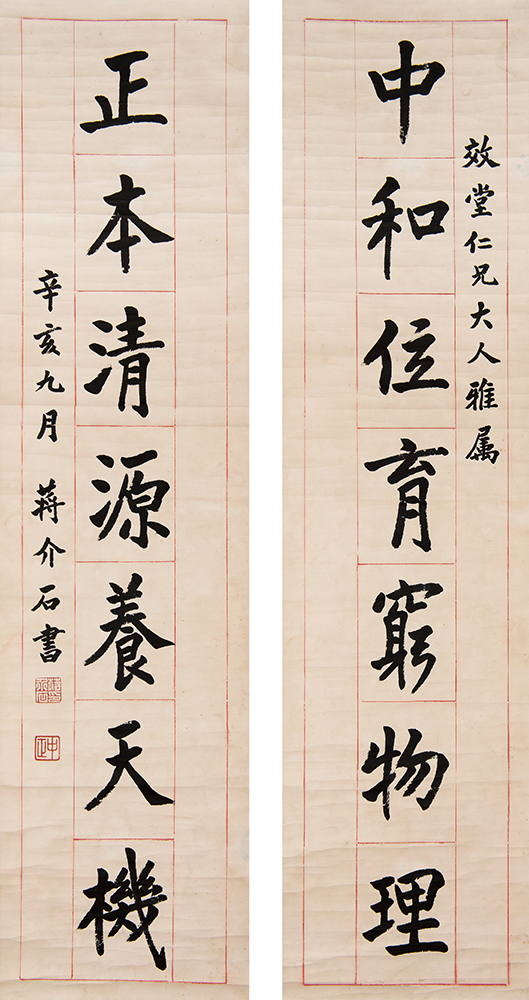 效堂仁兄大人雅属
中和位育窮物理
正本清源養天機
辛亥九月 蒋介石書
中正